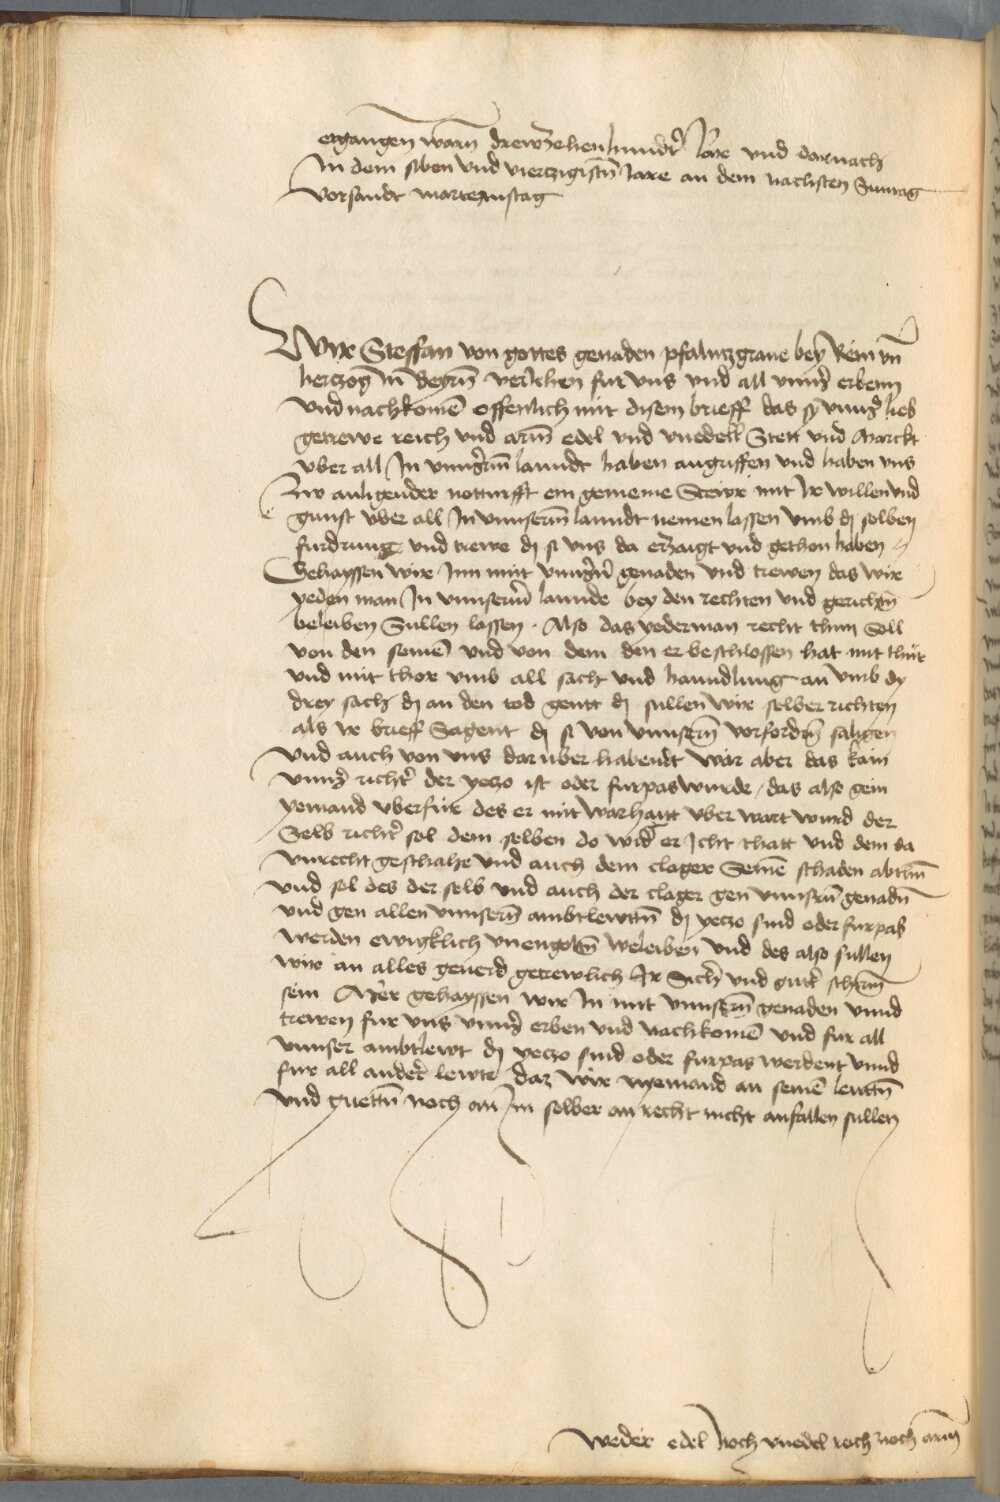 ergangen warn drewzehenhundert Jare und darnach
In dem siben und viertzigistn Jare an dem nachsten Suntag
vor sandt marteinstag
Wir Steffan von gottes genaden pfalntzgrave bey Rein vn
hertzog in Beyrn veriehen fur vns vnd all vnnser erbenn
vnd nachkomen offenlich mit disem brieff das sy vnnser lieb
getrewe reich vnd arm edel vnd vnedell Stett vnd Marckt
vber all In vnnserm lanndt haben angriffen vnd haben vns
zw anligender notturfft ein gemeine Stewr mit Ir willen vnd
gunst vber all In vnnserm lanndt nemen lassen vmb dy selben
furdrung vnd trewe dy si vns da erzaigt vnd gethon haben
Gehayssen wir Inn mit vnnsern genaden vnd trewen das wir
yeden man In vnnserm lannde bey den rechten vnd gerichtn
beleiben Sullen lassen. Also das yederman recht thun Soll
von den seinen vnd von dem den er beschlossen hat mit thur
vnd mit thor vmb all sach vnd hanndlung an vmb dy
drey sach dy an den tod gentt dy sullen wir selber richten
als ir brieff Sagent dy si von vnnsern vorfordern saligen
vnd auch von vns daruber habendt war aber das kain
vnnser richter der yeczo ist oder furpas wurde, das also gein
yemand vberfur des er mit warhaitt vber wart wurd der
Selb richter sol dem selben do wider er Icht thatt vnd dem da
vnrecht geschahe vnd auch dem clager Seinen schaden abthun
vnd sol des der selb vnd auch der clager gen vnnsern genadn
vnd gen allen vnnsern ambtlewttn dy yeczo sind oder furpas
werden ewigklich vnengoltn beleiben vnd des also sullen
wir an alles geuerd getrewlich Ir Sicher vnd guter scherm
sein Mer gehayssen wir In mit vnnsern genaden vnnd
trewen fur vns vnnser erben vnd nachkomen vnd fur all
vnnser ambtlewt dy yeczo sind oder furpas werdent vnnd
fur all ander lewte daz wir nyemand an seinen leuttn
vnd guettn noch an Im selber an recht nicht anfallen sullen
weder edel noch vnedel reich noch arm